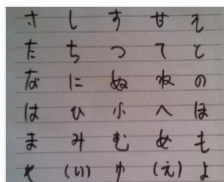 さ し す せ そ
た ち つ て と
な に ぬ ね の
は ひ ふ へ ほ
ま み む め も
や (い) ゆ (え) よ